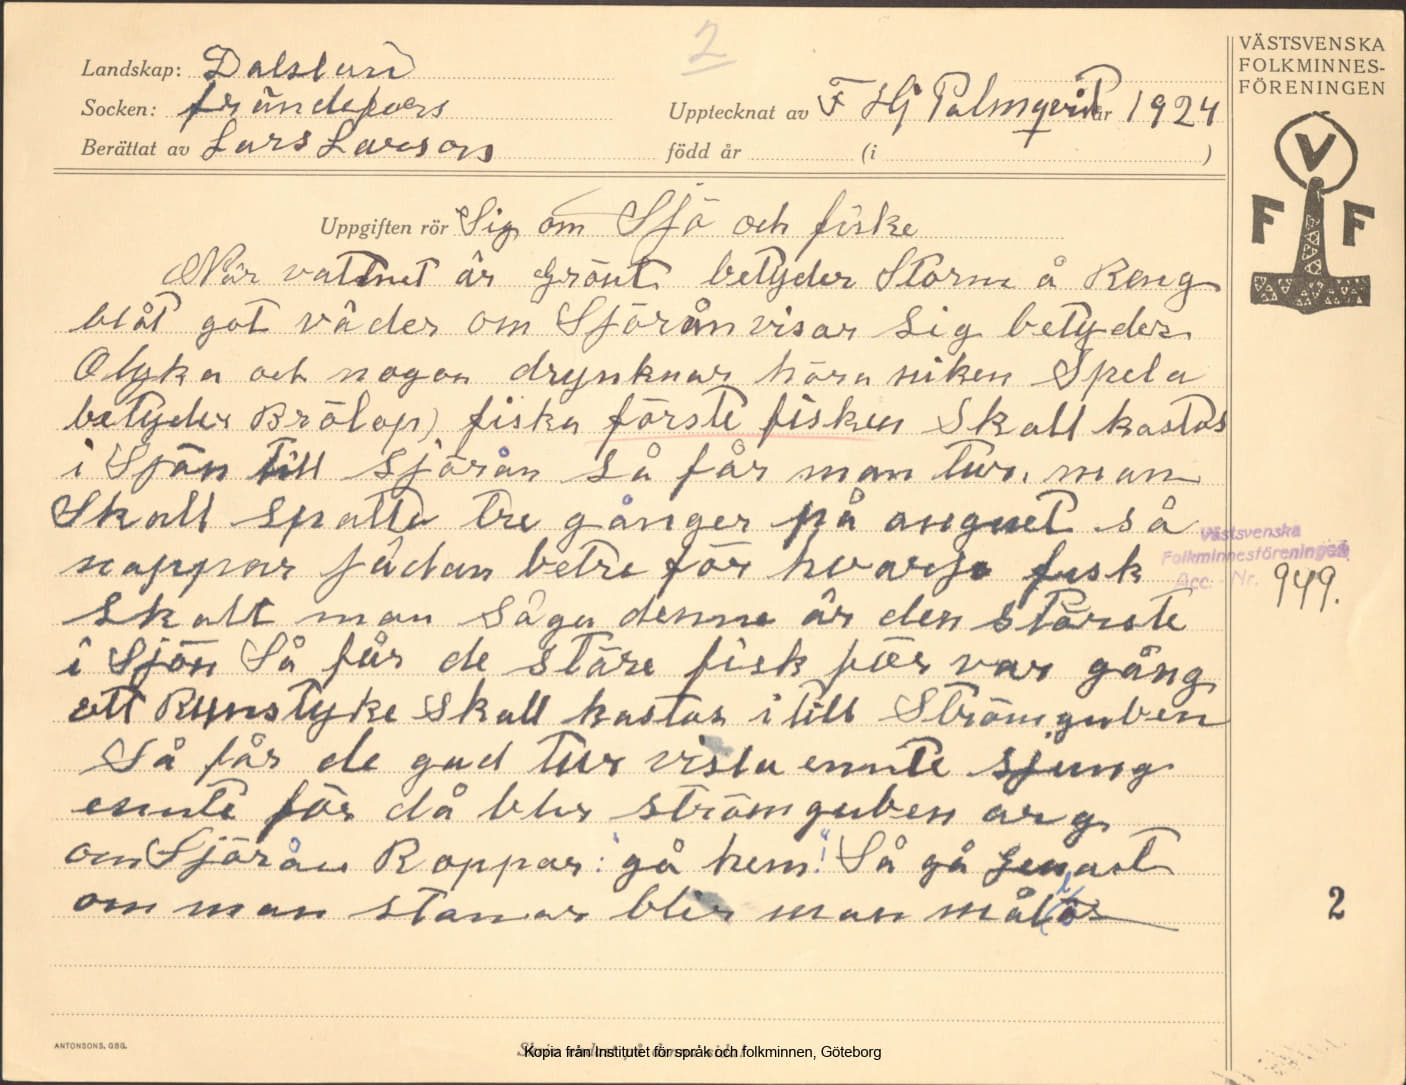 2
Landskap: Dalslan
Socken: frändefoers
Berättat av Lars Larson
Upptecknat av F Hj Palmqvist år 1924
född år (i )
VÄSTSVENSKA
FOLKMINNES-
FÖRENINGEN
V
F F
Uppgiften rör Sig om Sjö och fiske
När vattnet är grönt betyder Storm å Reng
blåt got väder om Sjörån visar sig betyder
Olyka och nogon drynknar höra niken Spela
betyder Brölop) fiska förste fisken Skall kastas
i Sjön till sjörån så får man tur. man
Skall spatte tre gånger på angnet så
nappar fådan betre för hvarje fisk
skall man såga denne är den störste
i Sjön Så får de störe fisk för var gång
ett Runstyke skall kastas i till Strömguben
Så får de god tur visla ennte sjung
ennte för då blir strömguben arg
om Sjörån Roppar: "gå hem!" Så gå genast
om man stanar blir man mållös
Västsvenska
Folkminnesföreningen
Acc. Nr. 949.
2
ANTONSONS, GBG.
Kopia från Institutet för språk och folkminnen, Göteborg